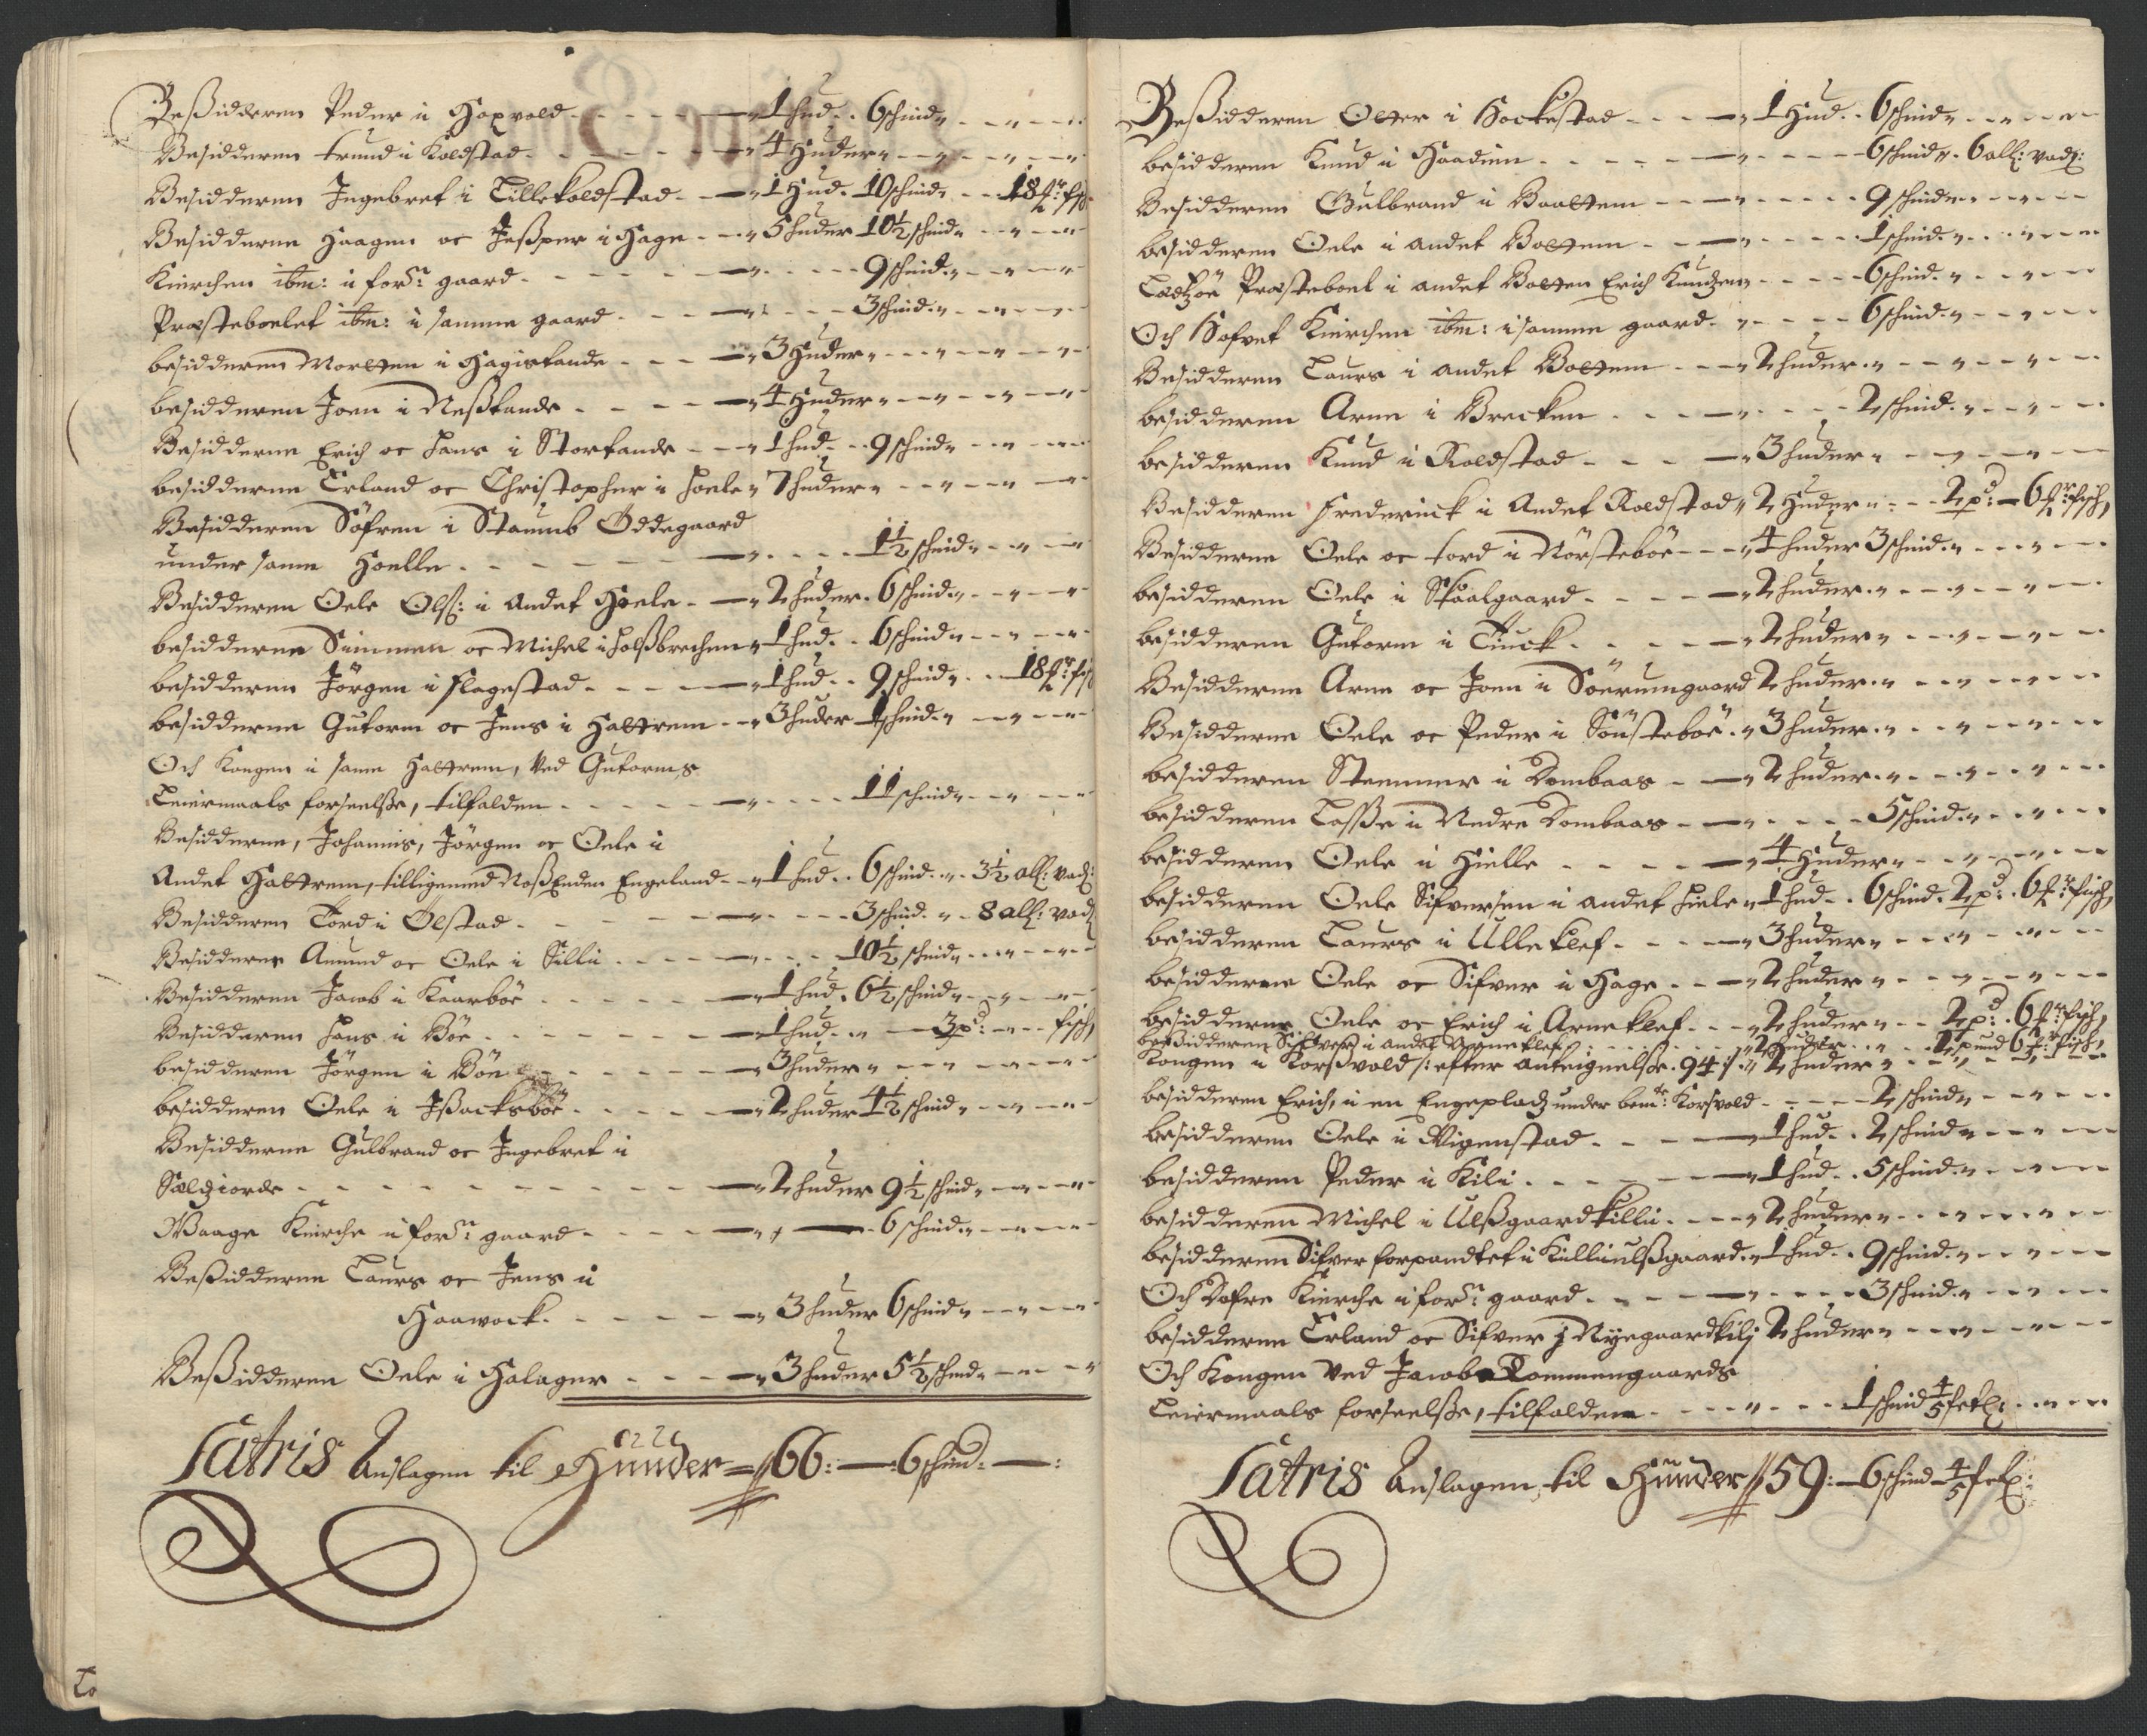 Beßidderen Peder i Haxvold - - - - - 1 hud - 6 schind
Besidderen trund i Koldstad - - - - 4 Huder
Besidderen Ingebret i Lillekoldstad - - 1 Hud - 10 schind - - 18 fisch
Besidderne Haagen oc Jeßper i Hage - - 5 huder 10½ schind
Kierchen ibm: i forn: gaard - - - - 9 schind
Præsteboelet ibm: i samme gaard - - - 3 schind
besidderen Morthen i Hagistande - - - 3 Huder
besidderen Joen i Neßtande - - - - 4 Huder
Besidderne Erich oc Hans i Stortande - - 1 hud - 9 schind
besidderne Erland oc Christopher i Hoele 7 huder
Besidderen Söfren i Staumb Öddegaard
under samme Hoelle - - - - - 1½ schind
Besidderen Oele Olß: i Andet Hoele - - 2 huder 6 schind
besidderne Simmen oc Michel i Holßbrechen 1 hud - 6 schind
besidderen Jörgen i Flagestad - - - 1 hud - 9 schind - - 18 fisch
besidderne Gutorm oc Jens i Hattrem - - 3 huder 1 schind
Och Kongen i samme Hattrem, Ved Gutorms
Leiermaals forseelße, tilfalden - - - - 11 schind
Besidderne, Johannis, Jörgen oc Oele i
Andet Hattrem, tilligemed Noßenden Engeland - 1 hud - 6 schind - 3½ all: vad:
Besidderen Tord i Ölstad - - - - 3 schind - 8 all: vad
Besidderne Amund oc Oele i Silli - - - 10½ schind
Besidderen Jacob i Kaarböe - - - - 1 hud - 6½ schind
Besidderen Hans i Böe - - - - 1 hud - 3 pd: - - fisch
besidderen Jörgen i Böe - - - - 3 huder
besidderen Oele i Jßacksböe - - - - 2 huder 4½ schind
Besidderne Gulbrand oc Ingebret i
Sælgiorde - - - - - - 2 huder 9½ schind
Waage Kierche i forn: gaard - - - - 6 schind
Beßidderne Laurs oc Jens i
Haawock - - - - - 3 huder 6 schind
Beßidderen Oele i Halager - - - - 3 huder 5½ schind
Latris Anslagen til Hunder 66: - 6 schind - :
Beßidderen Otter i Hockestad - - - 1 Hud - 6 schind
besidderen Knud i Haadem - - - - 6 schind - 6 all: vad:
Besidderen Gulbrand i Baattem - - - - 9 schind
besidderen Oele i andet Bottem - - - - 1 schind
Ladzöe Præsteboel i andet Botten Erich Knudzen - - 6 schind
Och Hofvet Kierchen ibm: i samme gaard - - - 6 schind
Besidderen Laurs i andet Bottem - - 2 huder
besidderen Arne i Brecken - - - - 2 schind
besidderen Knud i Roldstad - - - 3 huder
Besidderen Frederick i Andet Roldstad 2 Huder - - 2 pd: - 6 fisch,
Besidderne Oele oc tord i Nörsteböe - - 4 huder 3 schind
besidderen Oele i Skaalgaard - - - 2 huder
besidderen Gutorm i Tiuck - - - - 2 huder
Besidderne Arne oc Joen i Söerumgaard 2 huder
Besidderne Oele oc Peder i Sönsteböe - 3 huder
besidderen Stemmer i Dombaas - - 2 huder
besidderen Laße i Nedre Dombaas - - - - 5 schind
besidderen Oele i Hielle - - - - 4 Huder
besidderen Oele Sifversen i andet Hiele 1 hud - 6 schind - 2 pd: 6 fisch,
besidderen Laurs i Ulleklef - - - 3 huder
besidderne Oele oc Sifver i Hage - - 2 huder
besidderne Oele oc Erich i Arneklef - - 2 huder - - 2 pd: 6 fisch,
beßidderen Sifver i andet Arneklef - - - 2 huder - - 2 pund 6 fisch,
Kongen i Korßvold /: efter anteignelße 94 :/ 2 huder
besidderen Erich, i en Engeplads under bemte: Korsvold - - - 2 schind
besidderen Oele i Vigenstad - - - 1 hud - 2 schind
besidderen Peder i Kili - - - - 1 hud - 5 schind
besidderen Michel i Ulßgaardkilli - - 2 huder
besidderen Sifver forpandtet i Killiulßgaard 1 hud - 9 schind
Och Dofre Kierche i forn: gaard - - - - 3 schind
besidderne Erland oc Sifver j Nyegaardkilj 2 huder
Och Kongen Ved Jacob Tommengaards
Leiermaals forseelße, tilfalden - - - - 1 schind 4/5
Latris Anslagen til Hunder 59: - 6 schind 4/5